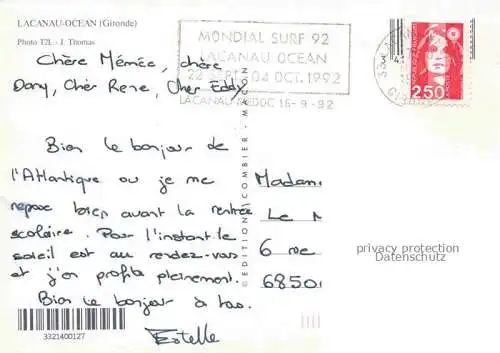 LACANAU-OCEAN (Gironde)
Photo T2L - J. Thomas
MONDIAL SURF 92
LACANAU OCEAN
22 SEPT. 04 OCT. 1992
LACANAU MEDOC 16-9-92
2,50
Chère Mémée, chère
Dany, Chèr Rene, Cher Eddy
Bien le bonjour de
l'Atlantique ou je me
repose bien avant la rentrée
scolaire. Pour l'instant le
soleil est au rendez-vous
et j'en profite pleinement.
Bien le bonjour à tous.
Estelle
© EDITION COMBIER - MACON
Madam
Le
6 rue
6850
privacy protection
Datenschutz
3321400127